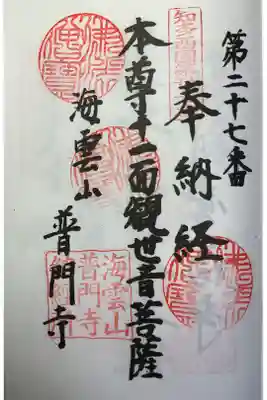 第二十七番
奉納経
本尊十一面観世音菩薩
海雲山
普門寺
海雲山
普門寺
納経之印